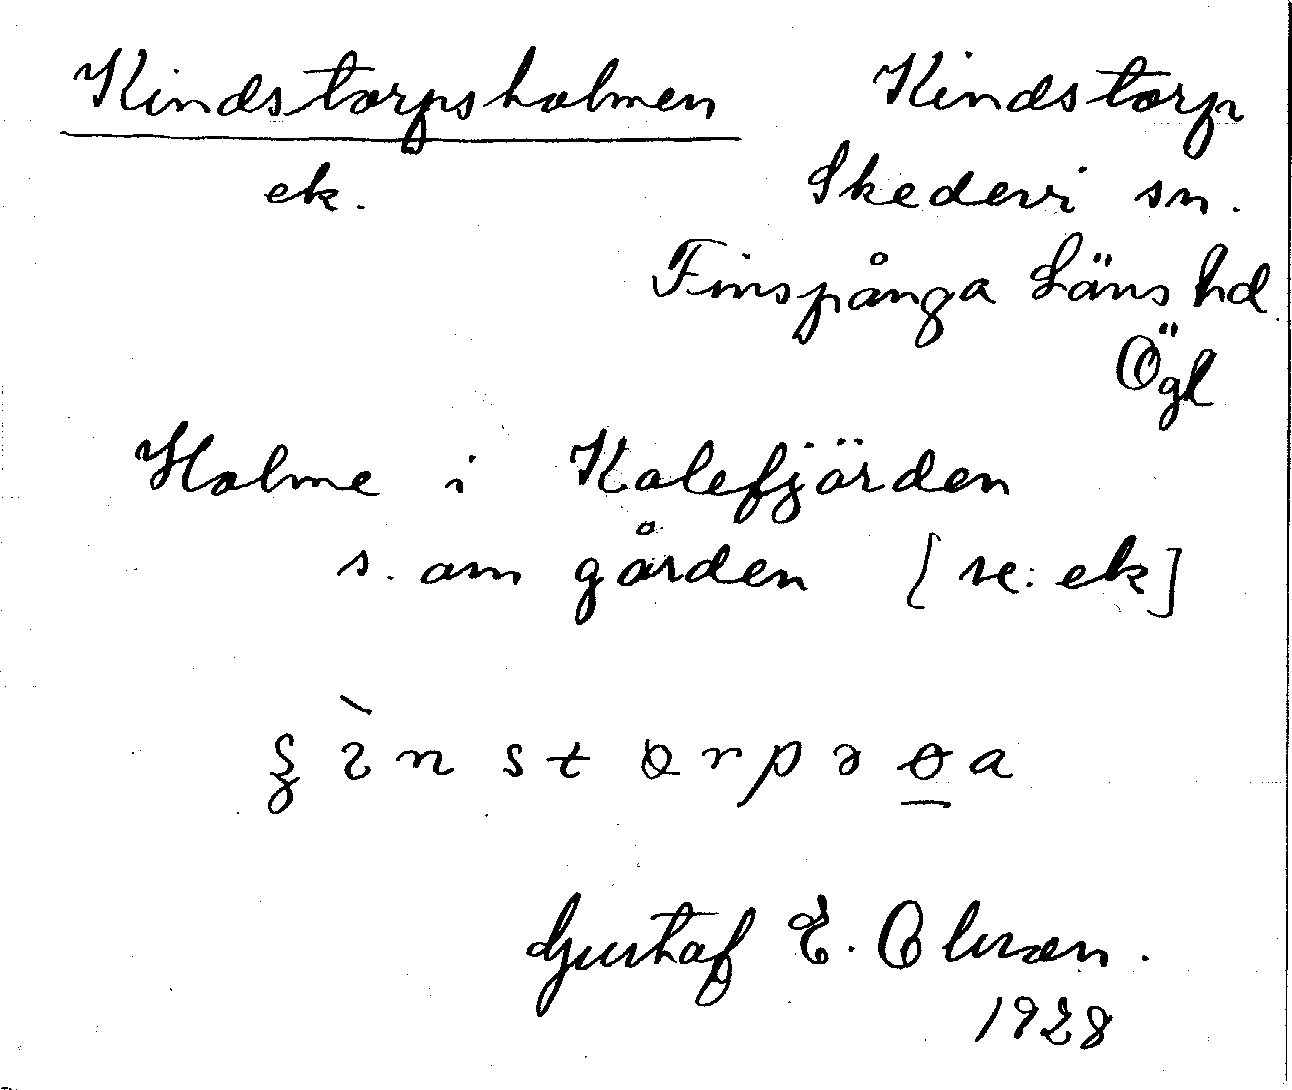 Kindstorpsholmen
ek.
Kindstorp
Skedevi sn.
Finspånga Läns hd
Ögl
Holme i Kolefjärden
s. om gården [se: ek]
Gustaf E. Olsson.
1928